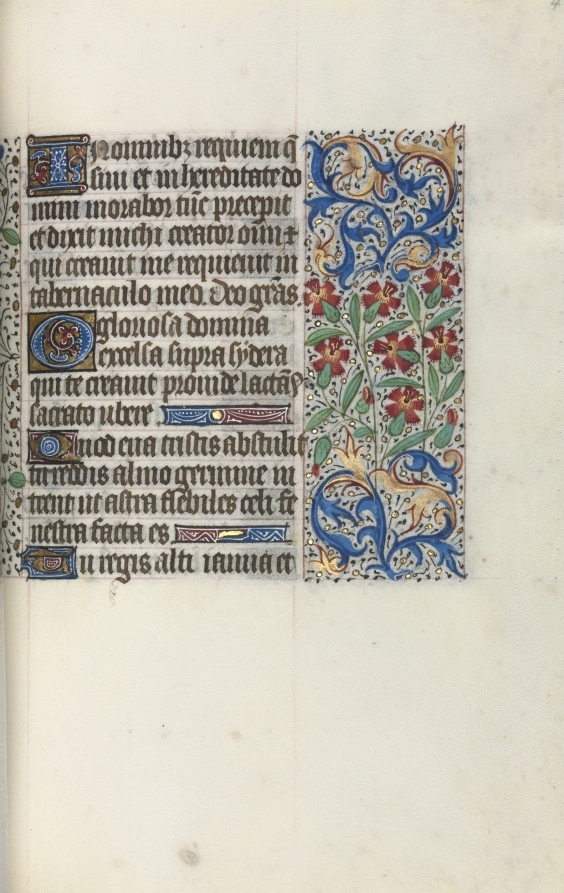 In omnibȝ requiem q̄
siui et in hereditate do
mini morabor tūc precepit
et dixit michi creator oīm ⁊
qui creauit me requieuit in
tabernaculo meo. Deo grās
O gloriosa domina
excelsa supra sydera
qui te creauit prouide lactasti
sacrato ubere
Quod eua tristis abstulit
tu reddis almo germine in
trent ut astra flebiles celi fe
nestra facta es
Tu regis alti ianua et
4